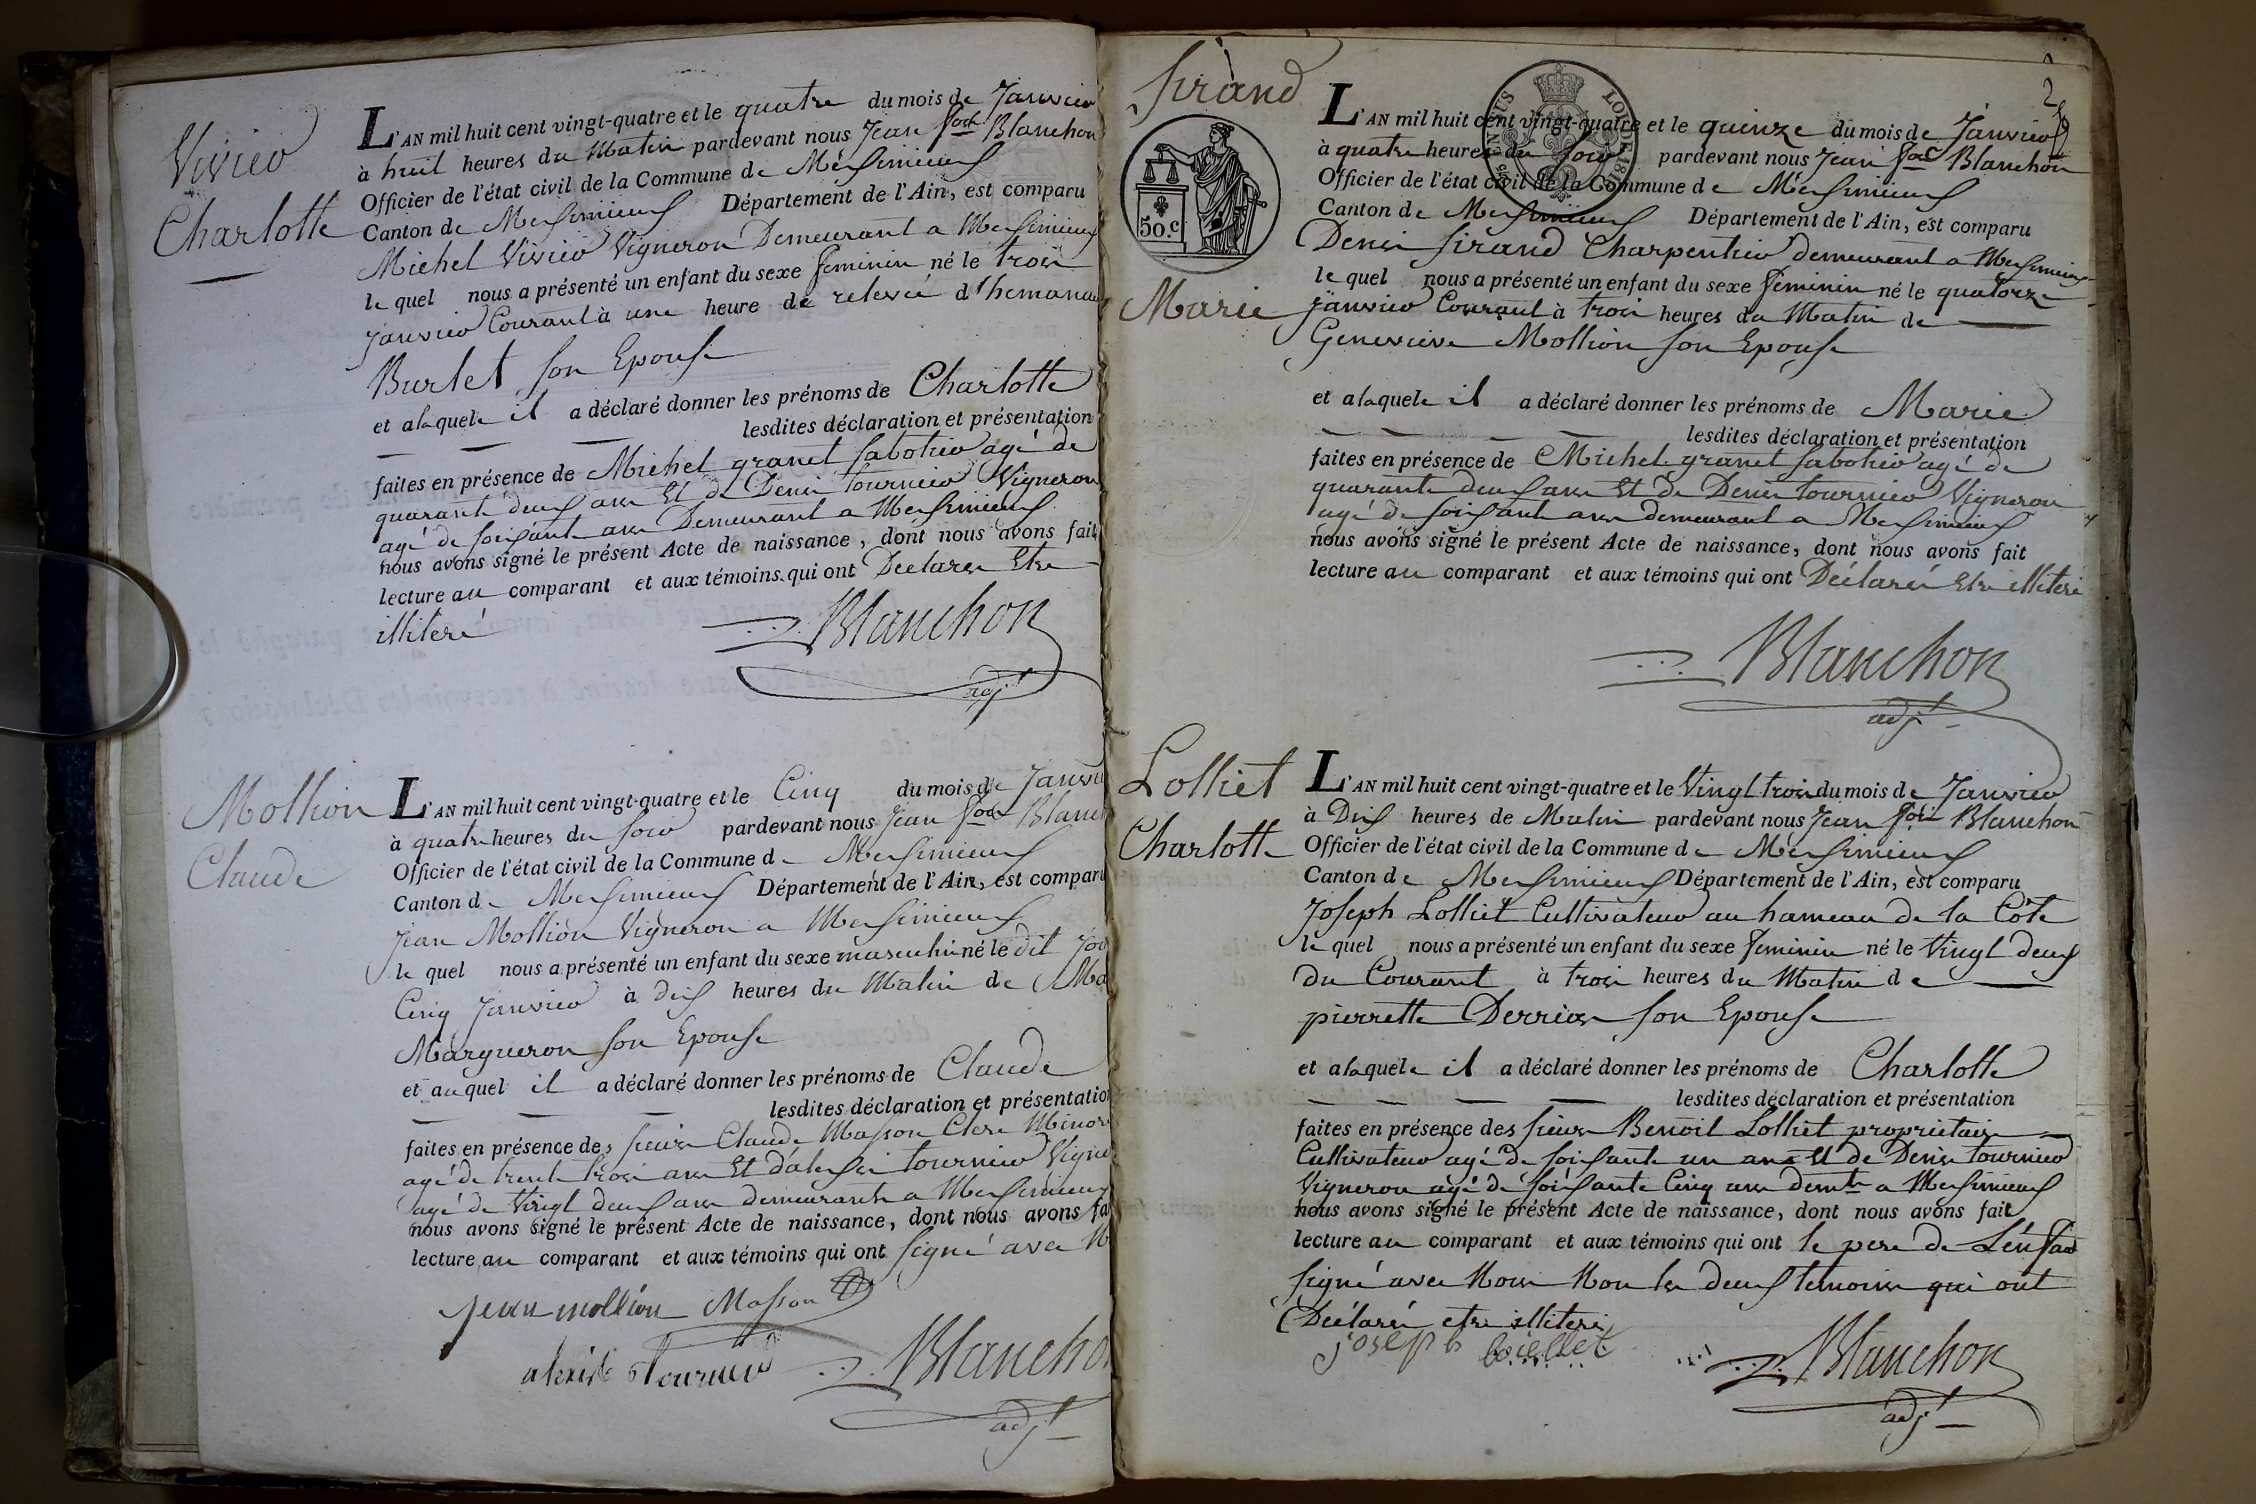 Vivier
Charlotte
L'AN mil huit cent vingt-quatre et le quatre du mois de Janvier
à huit heures du Matin pardevant nous Jean Blanchon
Officier de l'état civil de la Commune de Messimieux
Canton de Messimieux Département de l'Ain, est comparu
Michel Vivier Vigneron Demeurant a Messimieux
le quel nous a présenté un enfant du sexe feminin né le trois
janvier Courant à une heure de relevée
Burlet son Epouse
et a laquele il a déclaré donner les prénoms de Charlotte
lesdites déclaration et présentation
faites en présence de Michel granet sabotier agé de
quarante deux ans Et de Denis tournier Vigneron
agé de soixante ans Demeurant a Messimieux
nous avons signé le présent Acte de naissance, dont nous avons fait
lecture au comparant et aux témoins qui ont Declarer Etre
illiteré
Blanchon
adjt
Mollion
Claude
L'AN mil huit cent vingt-quatre et le Cinq du mois de Janvi
à quatre heures du soir pardevant nous Jean Blanch
Officier de l'état civil de la Commune de Messimieux
Canton de Messimieux Département de l'Ain, est comparu
Jean Mollion Vigneron a Messimieux
le quel nous a présenté un enfant du sexe masculin né le dit jou
Cinq janvier à dix heures du Matin de Ma
Margueron son Epouse
et auquel il a déclaré donner les prénoms de Claude
lesdites déclaration et présentation
faites en présence des sieurs Claude Masson Clerc Minor
agé de trente trois ans Et d'alexis tournier Vigne
agé de Vingt deux ans demeurants a Messimieux
nous avons signé le présent Acte de naissance, dont nous avons fa
lecture au comparant et aux témoins qui ont signé avec N
jean mollion Masson
alexis Tournier Blancho
adjt
Sirand
50.c
Marie
2
L'AN mil huit cent vingt-quatre et le quinze du mois de Janvier
à quatre heures du soir pardevant nous Jean Blanchon
Officier de l'état civil de la Commune de Messimieux
Canton de Messimieux Département de l'Ain, est comparu
Denis Sirand Charpentier demeurant a Messimieux
le quel nous a présenté un enfant du sexe feminin né le quatorze
janvier Courant à trois heures du Matin de
Genevieve Mollion son Epouse
et a laquele il a déclaré donner les prénoms de Marie
lesdites déclaration et présentation
faites en présence de Michel granet sabotier agé de
quarante deux ans Et de Denis tournier Vigneron
agé de soixante ans demeurant a Messimieux
nous avons signé le présent Acte de naissance, dont nous avons fait
lecture au comparant et aux témoins qui ont Déclaré Etre illiteré
Blanchon
adjt
Lolliet
Charlotte
L'AN mil huit cent vingt-quatre et le Vingt trois du mois de Janvier
à Dix heures de Matin pardevant nous Jean Blanchon
Officier de l'état civil de la Commune de Messimieux
Canton de Messimieux Département de l'Ain, est comparu
Joseph Lolliet Cultivateur au hameau de la Côte
le quel nous a présenté un enfant du sexe feminin né le Vingt deux
du Courant à trois heures du Matin de
pierrette Derrias son Epouse
et a laquele il a déclaré donner les prénoms de Charlotte
lesdites déclaration et présentation
faites en présence des sieurs Benoit Lolliet proprietaire
Cultivateur agé de soixante un ans et de Denis tournier
Vigneron agé de soixante Cinq ans demts a Messimieux
nous avons signé le présent Acte de naissance, dont nous avons fait
lecture au comparant et aux témoins qui ont le pere de L'enfant
signé avec Nous Non les deux temoins qui ont
Déclaré etre illiteré
joseph loiellet Blanchon
adjt